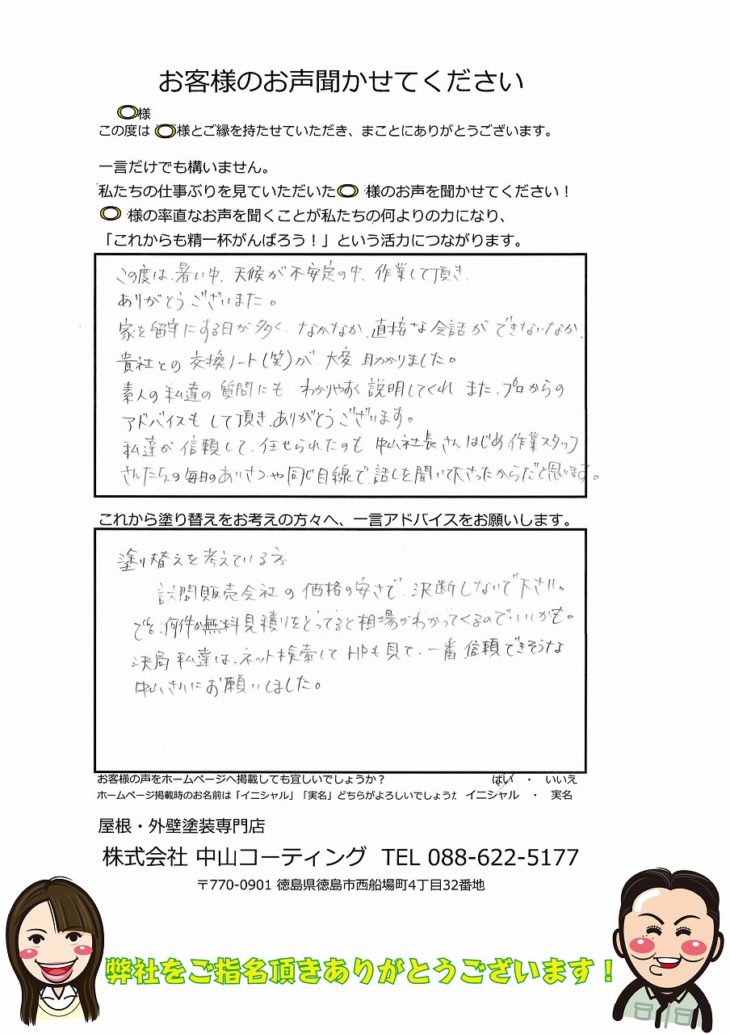 お客様のお声聞かせてください
様
この度は 様とご縁を持たせていただき、まことにありがとうございます。
一言だけでも構いません。
私たちの仕事ぶりを見ていただいた 様のお声を聞かせてください!
様の率直なお声を聞くことが私たちの何よりの力になり、
「これからも精一杯がんばろう!」という活力につながります。
この度は、暑い中、天候が不安定の中、作業して頂き、
ありがとうございました。
家を留守にする日が多く、なかなか、直接な会話ができないなか、
貴社との交換ノート(笑)が、大変助かりました。
素人の私達の質問にも わかりやすく説明してくれ また、プロからの
アドバイスもして頂き、ありがとうございます。
私達が信頼して、任せられたのも 中山社長さんはじめ作業スタッフ
さんたちの毎日のあいさつや同じ目線で話しを聞いて下さったからだと思います。
これから塗り替えをお考えの方々へ、一言アドバイスをお願いします。
塗り替えを考えている方
訪問販売会社の価格の安さで決断しないで下さい。
でも、何件か無料見積りをとってると相場がわかってくるので、いいかも。
決局 私達は、ネット検索して HPも見て、一番信頼できそうな
中山さんにお願いしました。
お客様の声をホームページへ掲載しても宜しいでしょうか? はい ・ いいえ
ホームページ掲載時のお名前は「イニシャル」「実名」どちらがよろしいでしょうか イニシャル ・ 実名
屋根・外壁塗装専門店
株式会社 中山コーティング TEL 088-622-5177
〒770-0901 徳島県徳島市西船場町4丁目32番地
弊社をご指名頂きありがとうございます!